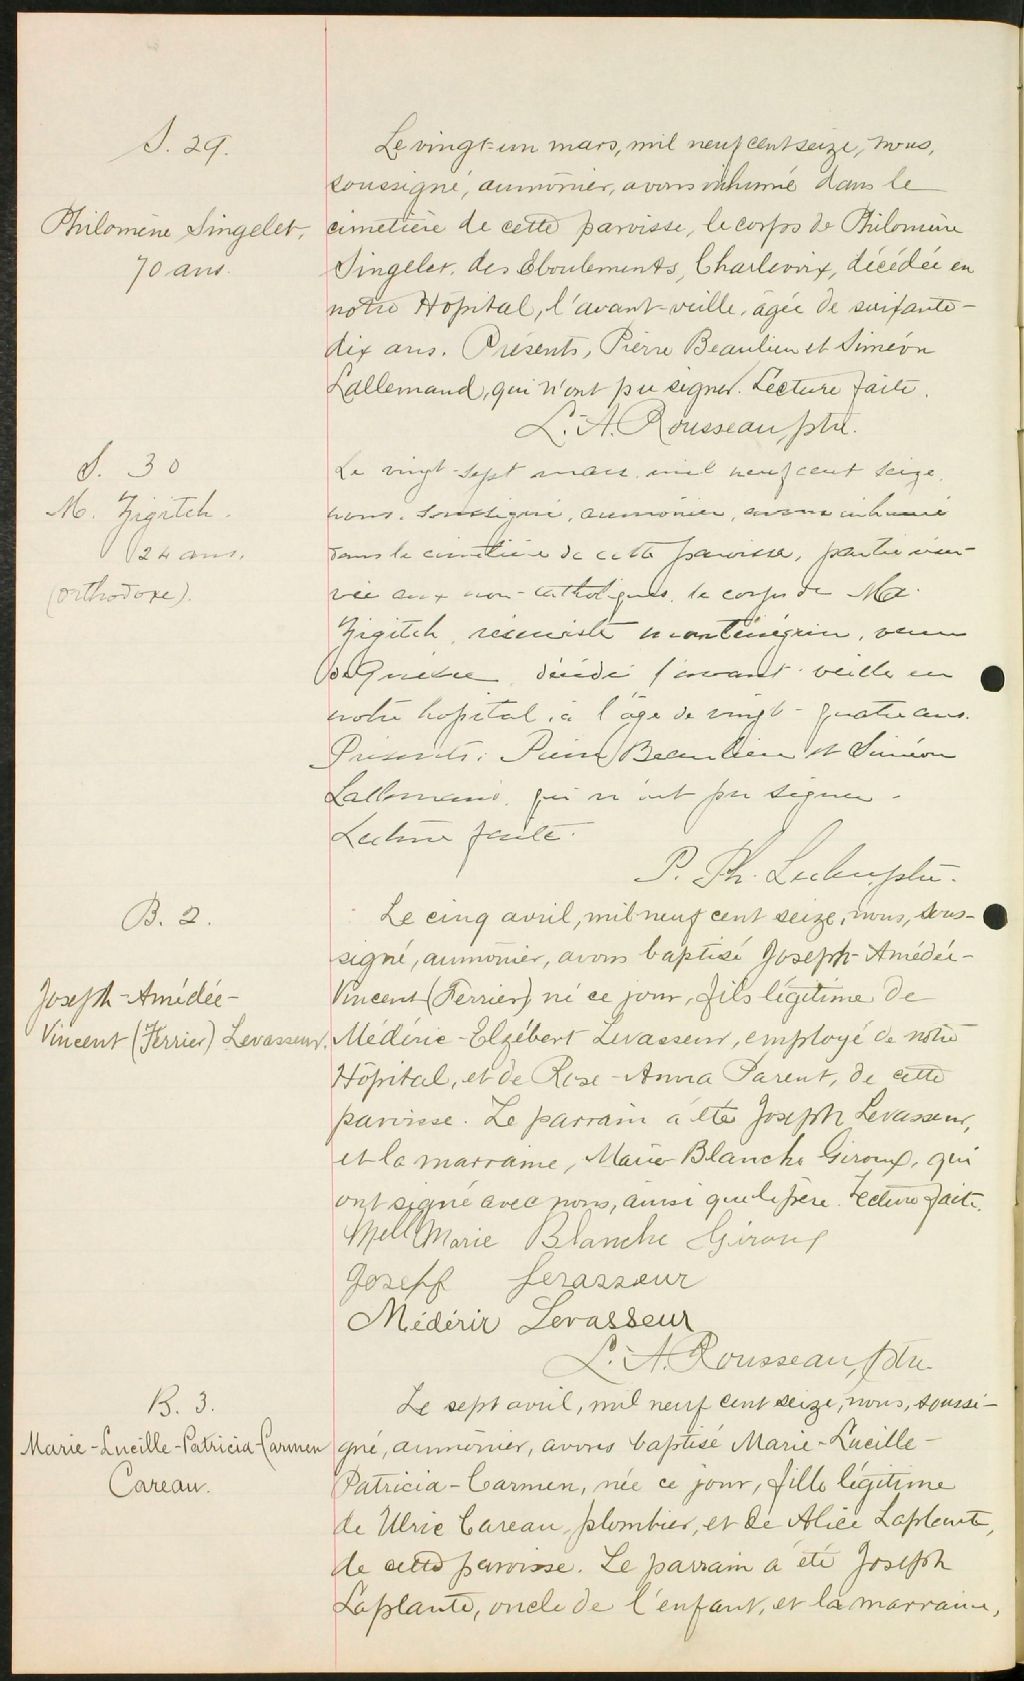 S. 29.
Philomène Singelet,
70 ans.
Le vingt-un mars, mil neuf cent seize, nous,
soussigné, aumônier, avons inhumé dans le
cimetière de cette paroisse, le corps de Philomène
Singelet, des Eboulements, Charlevoix, décédée en
notre Hôpital, l'avant-veille, âgée de soixante-
dix ans. Présents, Pierre Beaulieu et Siméon
Lallemand, qui n'ont pu signer. Lecture faite.
L.-A. Rousseau, ptre.
S. 30
M. Zigitch.
24 ans.
(orthodoxe).
Le vingt-sept mars mil neuf cent seize,
nous, soussigné, aumônier, avons inhumé
dans le cimetière de cette paroisse, partie réser-
vée aux non-catholiques, le corps de M.
Zigitch, réserviste monténégrin, venu
de décédé l'avant-veille en
notre hôpital, à l'âge de vingt-quatre ans.
Présents: Pierre Beaulieu et Siméon
Lallemand, qui n'ont pu signer.
Lecture faite.
P. Ph. ptre.
B. 2.
Joseph-Amédée-
Vincent (Ferrier) Levasseur.
Le cinq avril, mil neuf cent seize, nous, sous-
signé, aumônier, avons baptisé Joseph-Amédée-
Vincent (Ferrier) né ce jour, fils légitime de
Médéric-Elzébert Levasseur, employé de notre
Hôpital, et de Rose-Anna Parent, de cette
paroisse. Le parrain a été Joseph Levasseur,
et la marraine, Marie Blanche Giroux, qui
ont signé avec nous, ainsi que le père. Lecture faite.
Mell Marie Blanche Giroux
Joseff Levasseur
Médérir Levasseur
L.-A. Rousseau, ptre.
B. 3.
Marie-Lucille-Patricia-Carmen
Careau.
Le sept avril, mil neuf cent seize, nous, soussi-
gné, aumônier, avons baptisé Marie-Lucille-
Patricia-Carmen, née ce jour, fille légitime
de Ulric Careau, plombier, et de Alice Laplante,
de cette paroisse. Le parrain a été Joseph
Laplante, oncle de l'enfant, et la marraine,